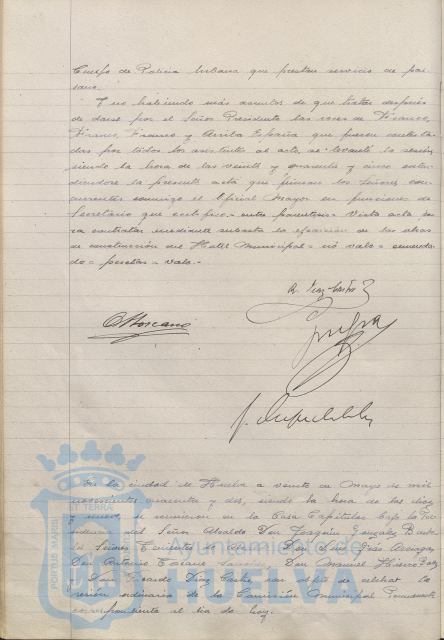 Cuerpo de Policía Urbana que prestan servicio de pai-
sano.
Y no habiendo más asuntos de que tratar después
de darse por el Señor Presidente las voces de Franco,
Franco, Franco y Arriba España que fueron contesta-
das por todos los asistentes al acto, se levantó la sesión
siendo la hora de las veinte y cuarenta y cinco exten-
diendose la presente acta que firman los Señores con-
currentes conmigo el Oficial Mayor en funciones de
Secretario que certifico.- entre parentesis - Vista acta
ra contratar mediante subasta la ejecución de las obras
de construcción del Hotel Municipal - no vale - enmenda-
do - pesetas - vale.-
En la ciudad de Huelva a veinte de Mayo de mil
novecientos cuarenta y dos, siendo la hora de las diez
y nueve se reunieron en la Casa Capitular bajo la Pre-
sidencia del Señor Alcalde Don Joaquín González Barba
los Señores Tenientes de Alcalde Don Luis
Don Antonio Don Manuel
y Don Ricardo Díaz con objeto de celebrar la
sesión ordinaria de la Comisión Municipal Permanente
correspondiente al día de hoy.
ET TERRA
PORTUS MARIS
Ayuntamiento de
HUELVA